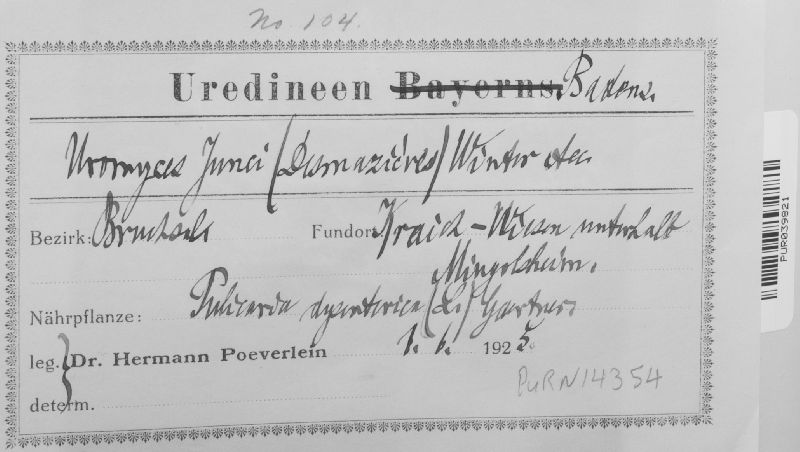 No. 104.
Uredineen Bayerns. Badens.
Uromyces Junci (Desmazières) Winter
Bezirk: Bruchsal Fundort: Kraich-Wiesen unterhalb
Mingolsheim.
Nährpflanze: Pulicaria dysenterica (L.) Gaertner
leg. Dr. Hermann Poeverlein 1. 6. 1925.
determ.
PURN14354
PUR039821